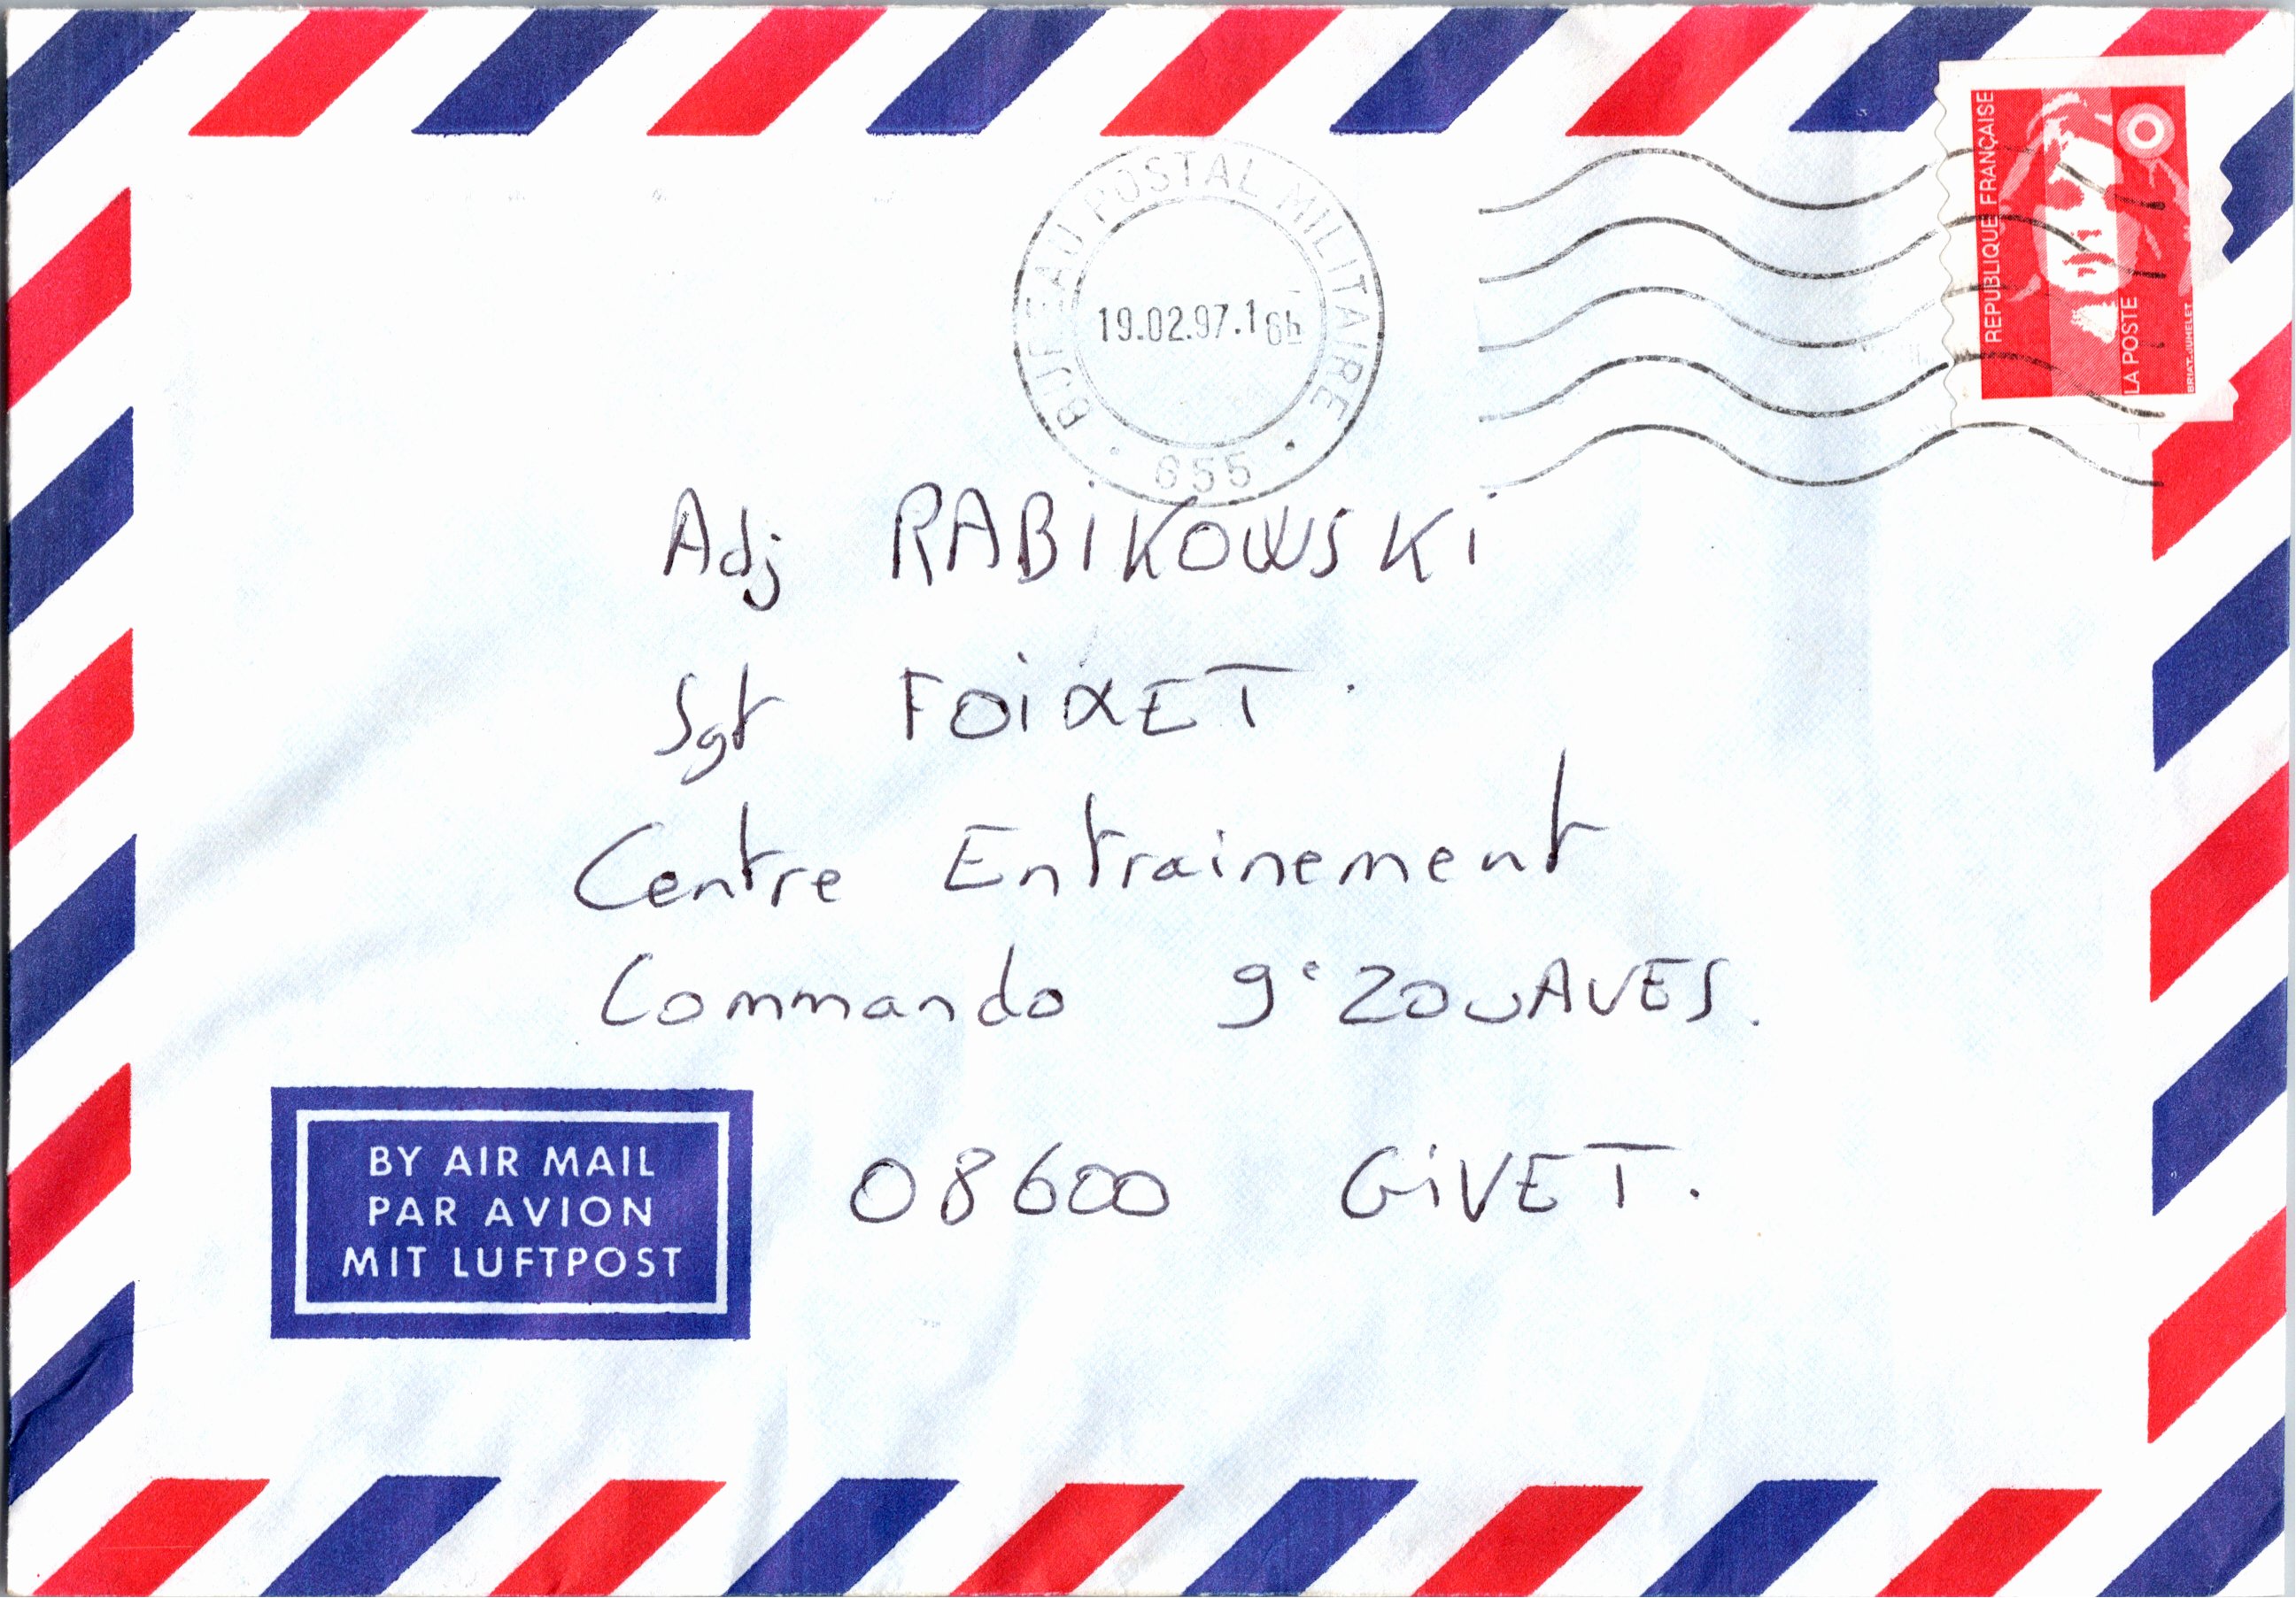 REPUBLIQUE FRANÇAISE
LA POSTE
BRIAT-JUMELET
BUREAU POSTAL MILITAIRE
19.02.97.16h
655
Adj RABiKOWSKi
Sgt FOiXET.
Centre Entrainement
Commando 9e ZOUAVES.
08600 GiVET.
BY AIR MAIL
PAR AVION
MIT LUFTPOST